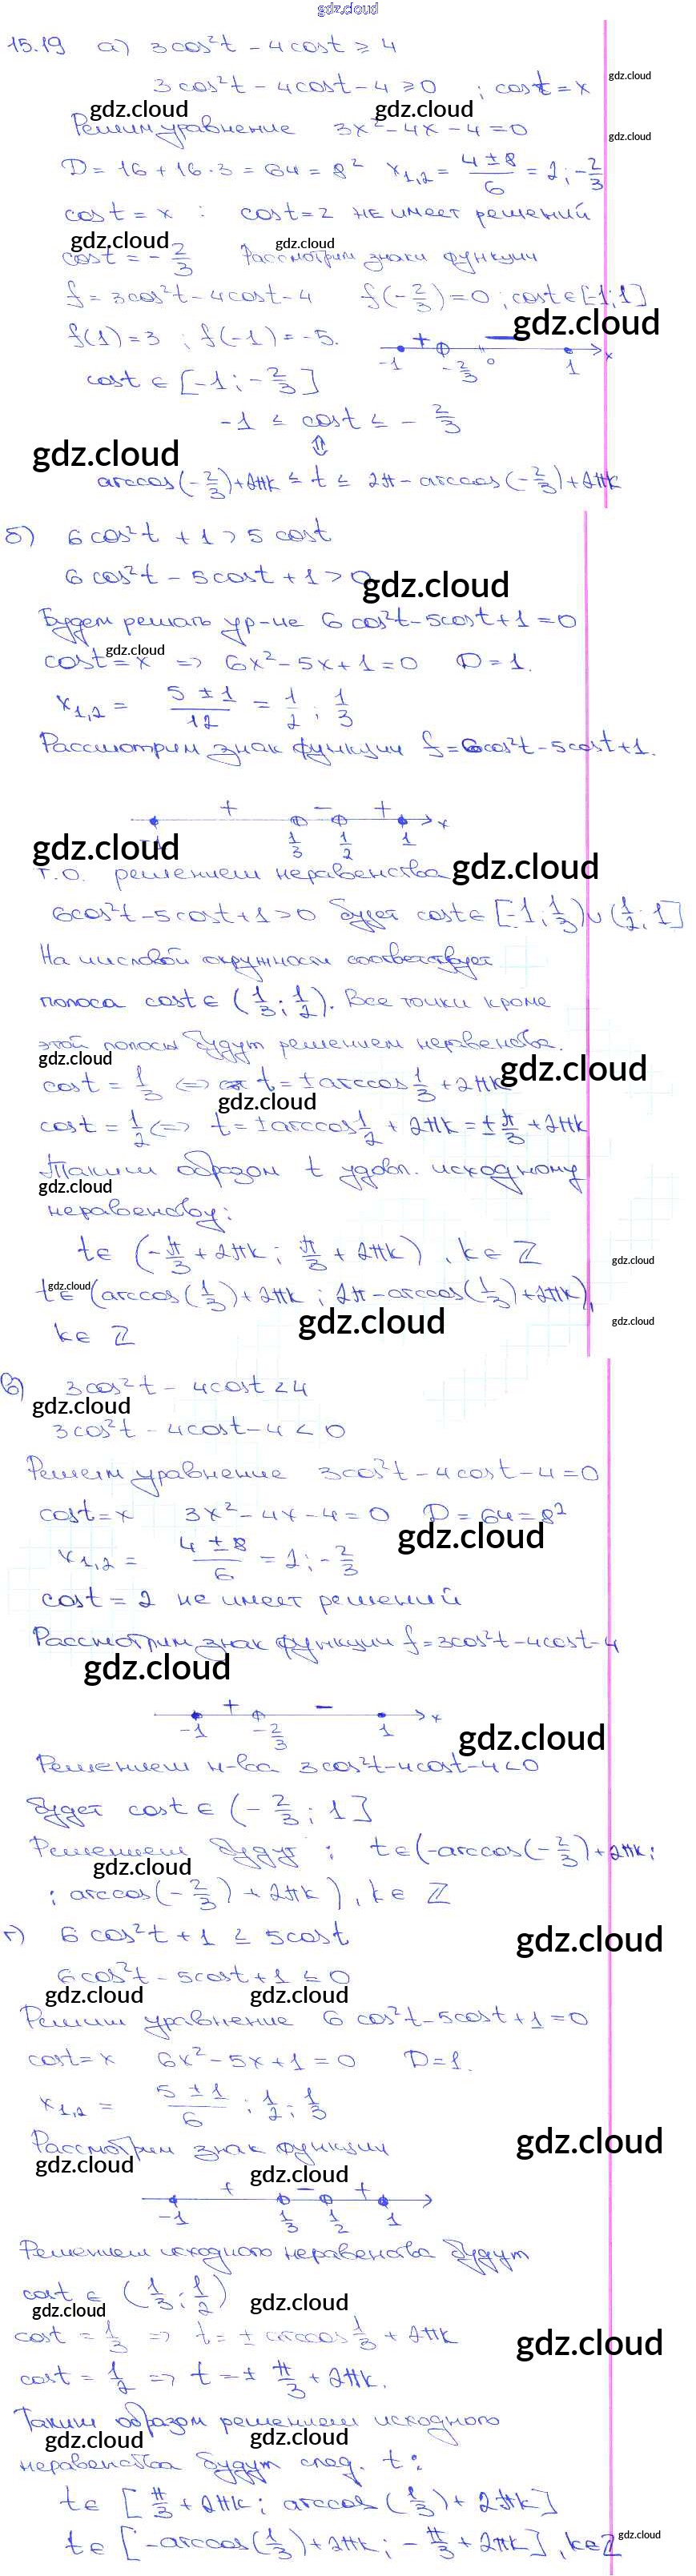 gdz.cloud
15.19 а) 3cos²t - 4cost ≥ 4
3cos²t - 4cost - 4 ≥ 0 ; cost = x
gdz.cloud
gdz.cloud gdz.cloud
Решим уравнение 3x² - 4x - 4 = 0
gdz.cloud
D = 16 + 16·3 = 64 = 8² x₁,₂ = (4 ± 8)/6 = 2; -2/3
cost = x : cost = 2 не имеет решений
gdz.cloud gdz.cloud
cost = -2/3 Рассмотрим знаки функции
f = 3cos²t - 4cost - 4 f(-2/3) = 0 ; cost ∈ [-1; 1]
gdz.cloud
f(1) = 3 ; f(-1) = -5.
+ −
-1 -2/3 0 1 x
cost ∈ [-1; -2/3]
-1 ≤ cost ≤ -2/3
⇕
gdz.cloud
arccos(-2/3) + 2πk ≤ t ≤ 2π - arccos(-2/3) + 2πk
б) 6cos²t + 1 > 5cost
6cos²t - 5cost + 1 > 0
gdz.cloud
Будем решать ур-ие 6cos²t - 5cost + 1 = 0
gdz.cloud
cost = x => 6x² - 5x + 1 = 0 D = 1.
x₁,₂ = (5 ± 1)/12 = 1/2 ; 1/3
Рассмотрим знак функции f = 6cos²t - 5cost + 1.
+ − +
-1 1/3 1/2 1 x
gdz.cloud gdz.cloud
т.о. решением неравенства
6cos²t - 5cost + 1 > 0 будет cost ∈ [-1; 1/3) ∪ (1/2; 1]
На числовой окружности соответствует
полоса cost ∈ (1/3; 1/2). Все точки кроме
этой полосы будут решением неравенства.
gdz.cloud gdz.cloud
cost = 1/3 <=> t = ± arccos 1/3 + 2πk
gdz.cloud
cost = 1/2 <=> t = ± arccos 1/2 + 2πk = ± π/3 + 2πk
Таким образом t удовл. исходному
gdz.cloud
неравенству:
t ∈ (-π/3 + 2πk; π/3 + 2πk), k ∈ Z
gdz.cloud
gdz.cloud
t ∈ (arccos(1/3) + 2πk; 2π - arccos(1/3) + 2πk),
gdz.cloud gdz.cloud
k ∈ Z
в) 3cos²t - 4cost < 4
gdz.cloud
3cos²t - 4cost - 4 < 0
Решим уравнение 3cos²t - 4cost - 4 = 0
cost = x 3x² - 4x - 4 = 0 D = 64 = 8²
gdz.cloud
x₁,₂ = (4 ± 8)/6 = 2; -2/3
cost = 2 не имеет решений
Рассмотрим знак функции f = 3cos²t - 4cost - 4
gdz.cloud
+ −
-1 -2/3 1 x
gdz.cloud
Решением н-ва 3cos²t - 4cost - 4 < 0
будет cost ∈ (-2/3; 1]
Решением будут : t ∈ (-arccos(-2/3) + 2πk;
gdz.cloud
; arccos(-2/3) + 2πk), k ∈ Z
г) 6cos²t + 1 ≤ 5cost
gdz.cloud
6cos²t - 5cost + 1 ≤ 0
gdz.cloud gdz.cloud
Решим уравнение 6cos²t - 5cost + 1 = 0
cost = x 6x² - 5x + 1 = 0 D = 1.
x₁,₂ = (5 ± 1)/6 ; 1/2 ; 1/3
gdz.cloud
Рассмотрим знак функции
gdz.cloud gdz.cloud
+ − +
-1 1/3 1/2 1
Решением исходного неравенства будут
cost ∈ (1/3; 1/2)
gdz.cloud gdz.cloud
cost = 1/3 => t = ± arccos 1/3 + 2πk
gdz.cloud
cost = 1/2 => t = ± π/3 + 2πk.
Таким образом решением исходного
gdz.cloud gdz.cloud
неравенства будут след. t:
t ∈ [π/3 + 2πk; arccos(1/3) + 2πk]
t ∈ [-arccos(1/3) + 2πk; -π/3 + 2πk], k ∈ Z
gdz.cloud